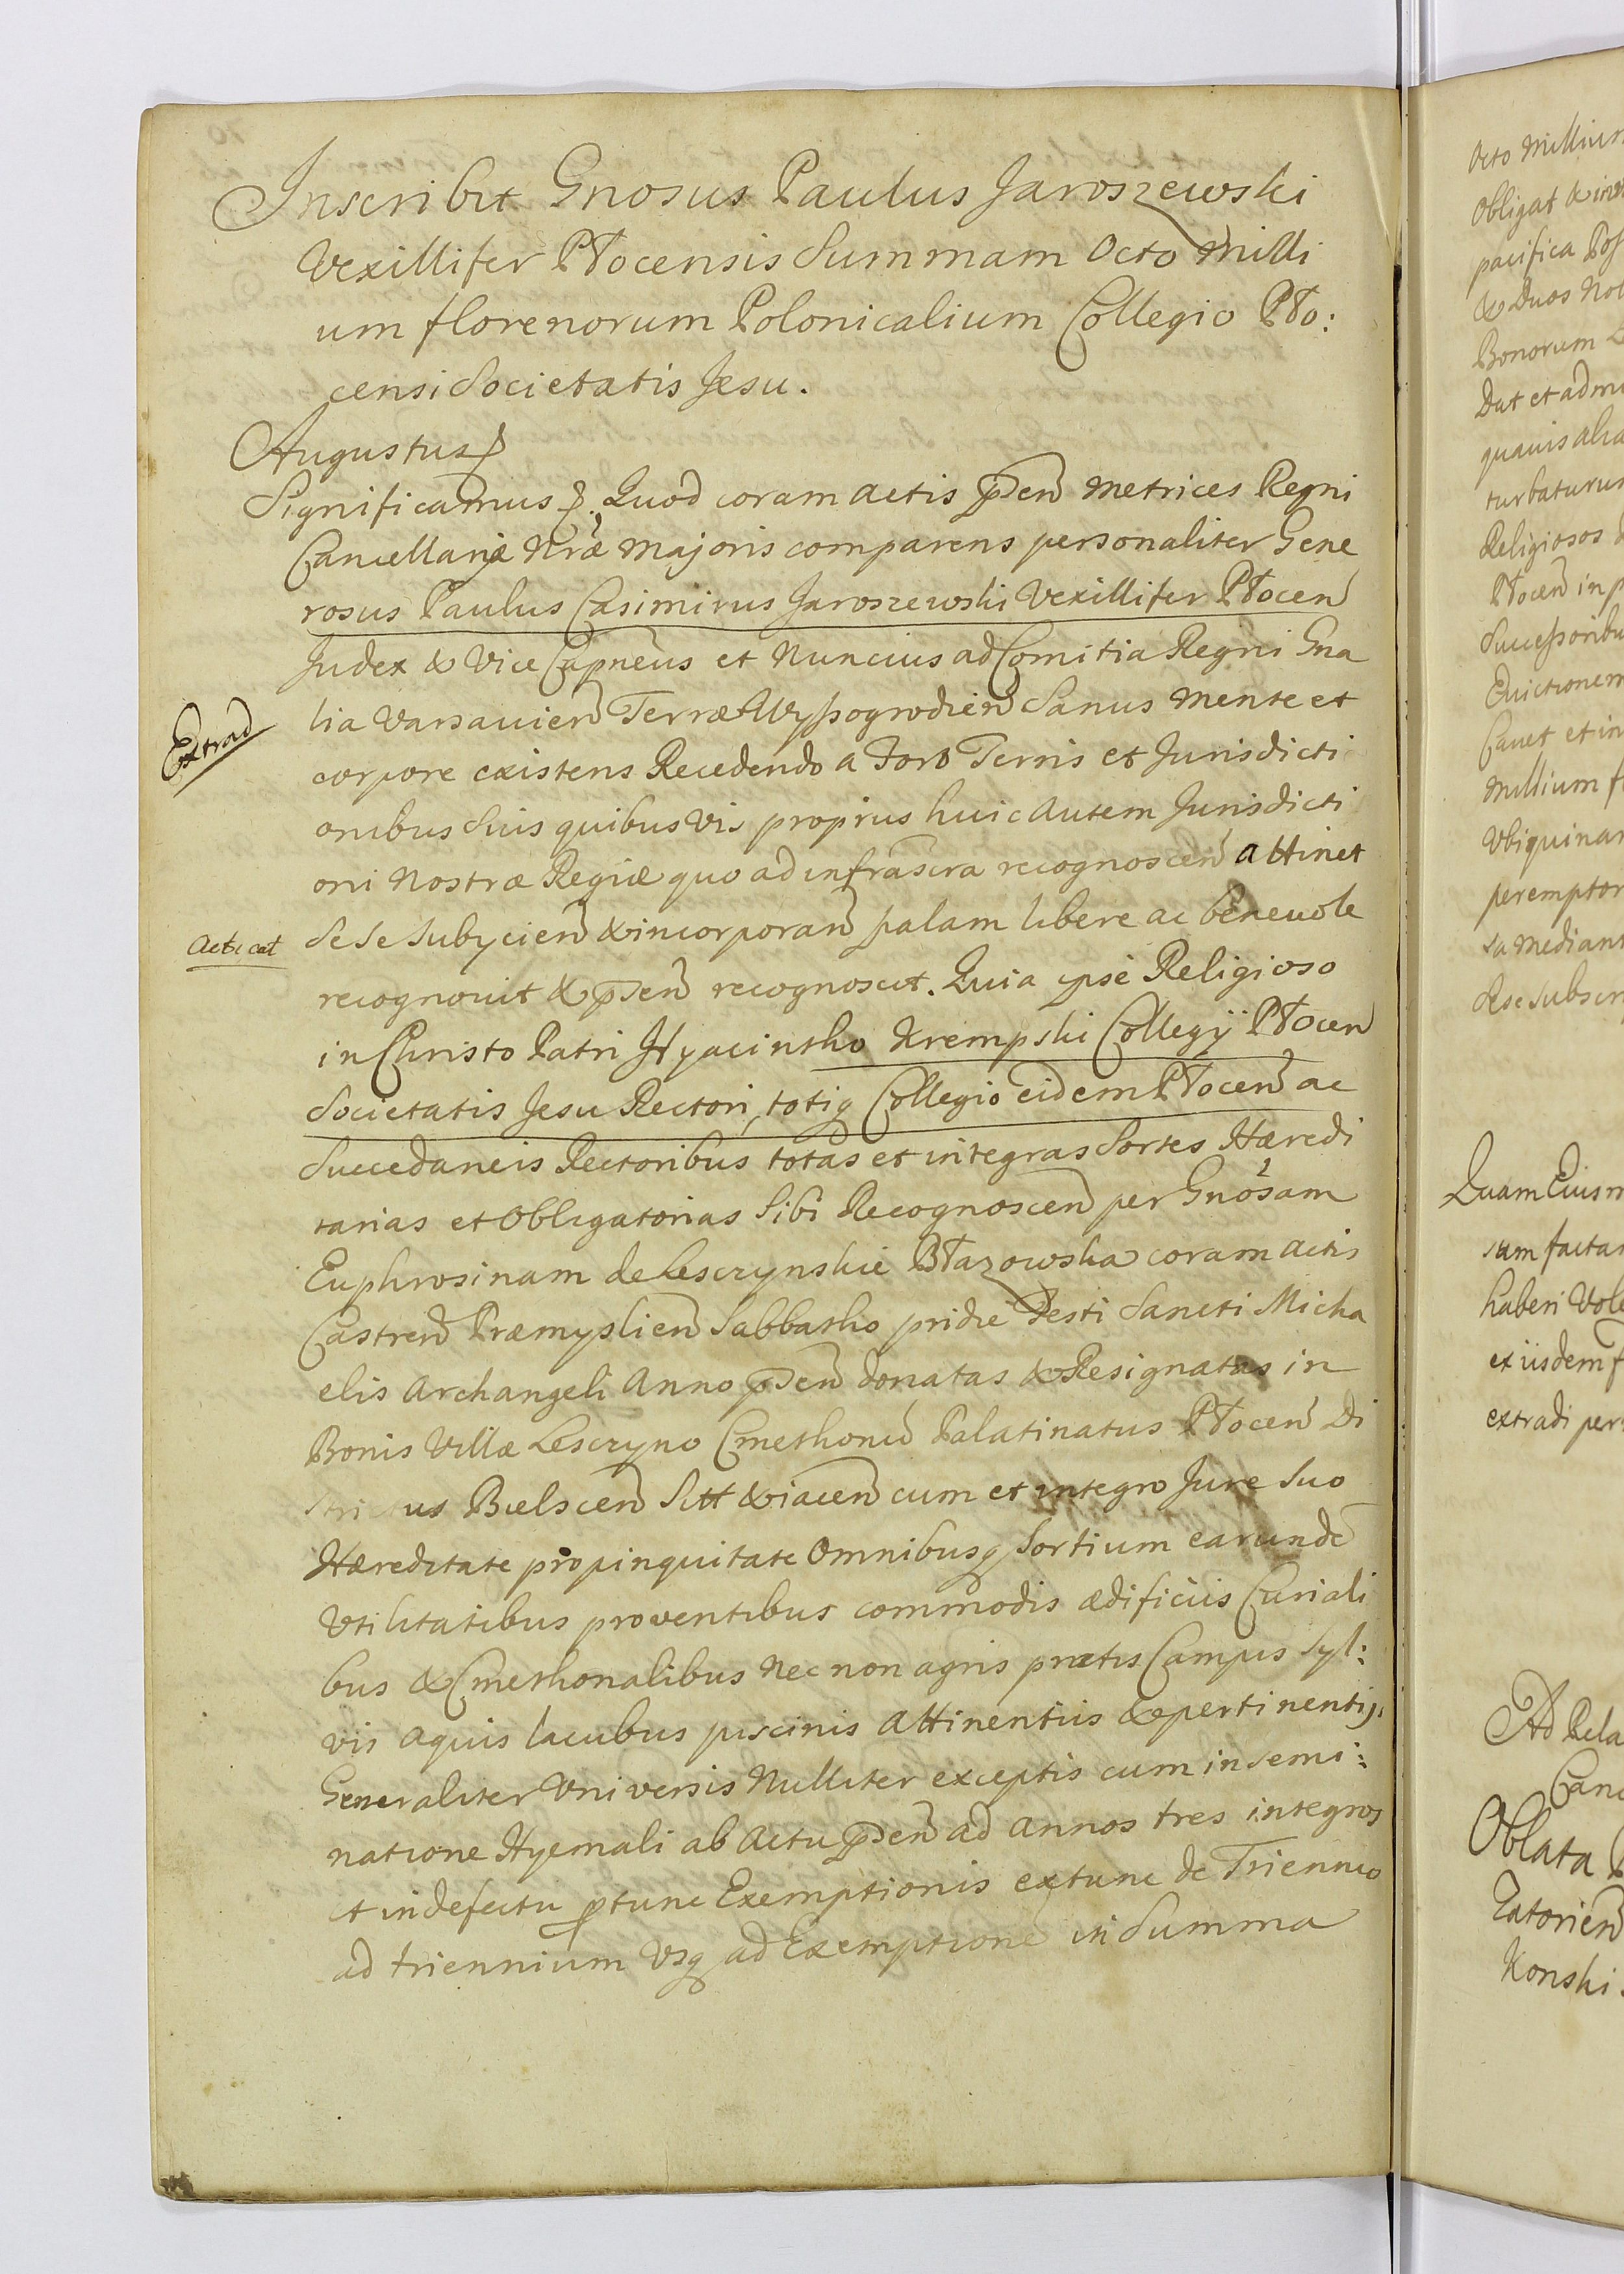 Inscribit Gnosus Paulus Jaroszewski
Vexillifer Płocensis Summam Octo Milli
um florenorum Polonicalium Collegio Pło:
censi Societatis Jesu.
Augustus
Significamus Quod coram actis pñseñ Metrices Regni
Cancellariæ Nræ Majoris comparens personaliter Gene
rosus Paulus Casimirus Jaroszewski Vexillifer Płoceñ
Judex & Vice Capneus et Nuncius ad Comitia Regni Gna
lia Varsavieñ Terræ Wyssogrodieñ Sanus Mente et
Extrad
corpore existens Recedendo a Foro Terris et Jurisdicti
onibus Suis quibusvis proprius huic autem Jurisdicti
oni Nostræ Regiæ quo ad infrascra recognosceñ attinet
Acticat
sese subycieñ & incorporañ palam libere ac benevole
recognovit & pñseñ recognoscit. Quia ipse Religioso
in Christo Patri Hyacintho Krempski Collegij Płoceñ
Societatis Jesu Rectori, totiq Collegio eidem Płoceñ ac
Succedaneis Rectoribus, totas et integras Sortes Hæredi
tarias et Obligatorias Sibi Recognosceñ per Gnosam
Euphrosinam de Lesczynskie Błazowska coram actis
Castreñ Præmyslieñ Sabbatho pridie Festi Sancti Micha
elis Archangeli Anno pñseñ donatas & Resignatas in
Bonis Villæ Lesczyno Cmethonũ Palatinatus Płoceñ Di
strictus Bielsceñ Sitt & iaceñ cum et integro Jure Suo
Hæreditate propinquitate Omnibusq Sortium earundẽ
Vtilitatibus proventibus commodis ædificiis Curiali
bus & Cmethonalibus Nec non agris pratis Campis Syl:
vis aquis lacubus piscinis attinentiis & pertinentijs
Generaliter Vniversis Nulliter exceptis cum insemi:
natione Hyemali ab Actu pñseñ ad annos tres integros
et in defectu ptunc Exemptionis extunc de Triennio
ad triennium Vsq ad Exemptionẽ in Summa
Octo Millium
Obligat &
pacifica
& Duos
Bonorum
Dat et
quavis
Religiosos
Płoceñ in
Evictionem
Cavet et in
Millium
sa
sese
Quam
haberi
ex iisdem
extradi per
Ad
Oblata
Konski